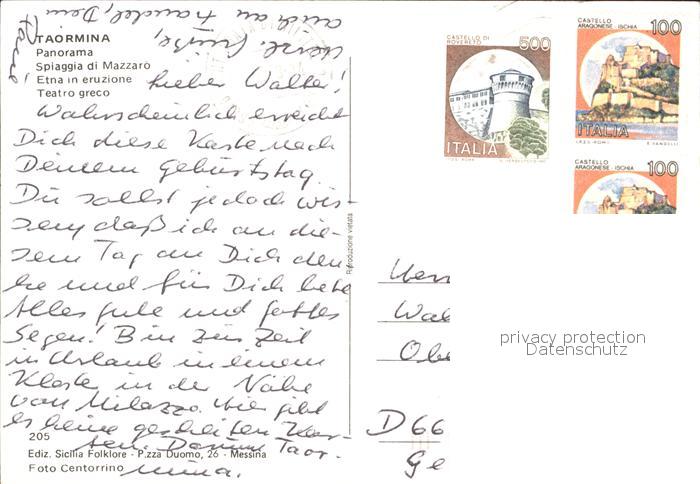 TAORMINA
Panorama
Spiaggia di Mazzaro
Etna in eruzione
Teatro greco
lieber Walter!
Wahrscheinlich erreicht
Dich diese Karte nach
Deinem Geburtstag.
Du sollst jedoch wis-
sen, daß ich an die-
sem Tag an Dich den-
ke und für Dich bete
Alles gute und Gottes
Segen! Bin zur Zeit
in Urlaub in einem
Kloster in der Nähe
von Milazzo. Hier gibt
es keine gescheiten Kar-
ten. Darum Taor-
mina.
Herzl. Grüße,
auch an
Dein
205
Ediz. Sicilia Folklore - P.zza Duomo, 26 - Messina
Foto Centorrino
Riproduzione vietata
CASTELLO DI
ROVERETO
500
ITALIA
CASTELLO
ARAGONESE - ISCHIA
100
ITALIA
CASTELLO
ARAGONESE - ISCHIA
100
Herr
Wal
Obe
D 66
Ge
privacy protection
Datenschutz